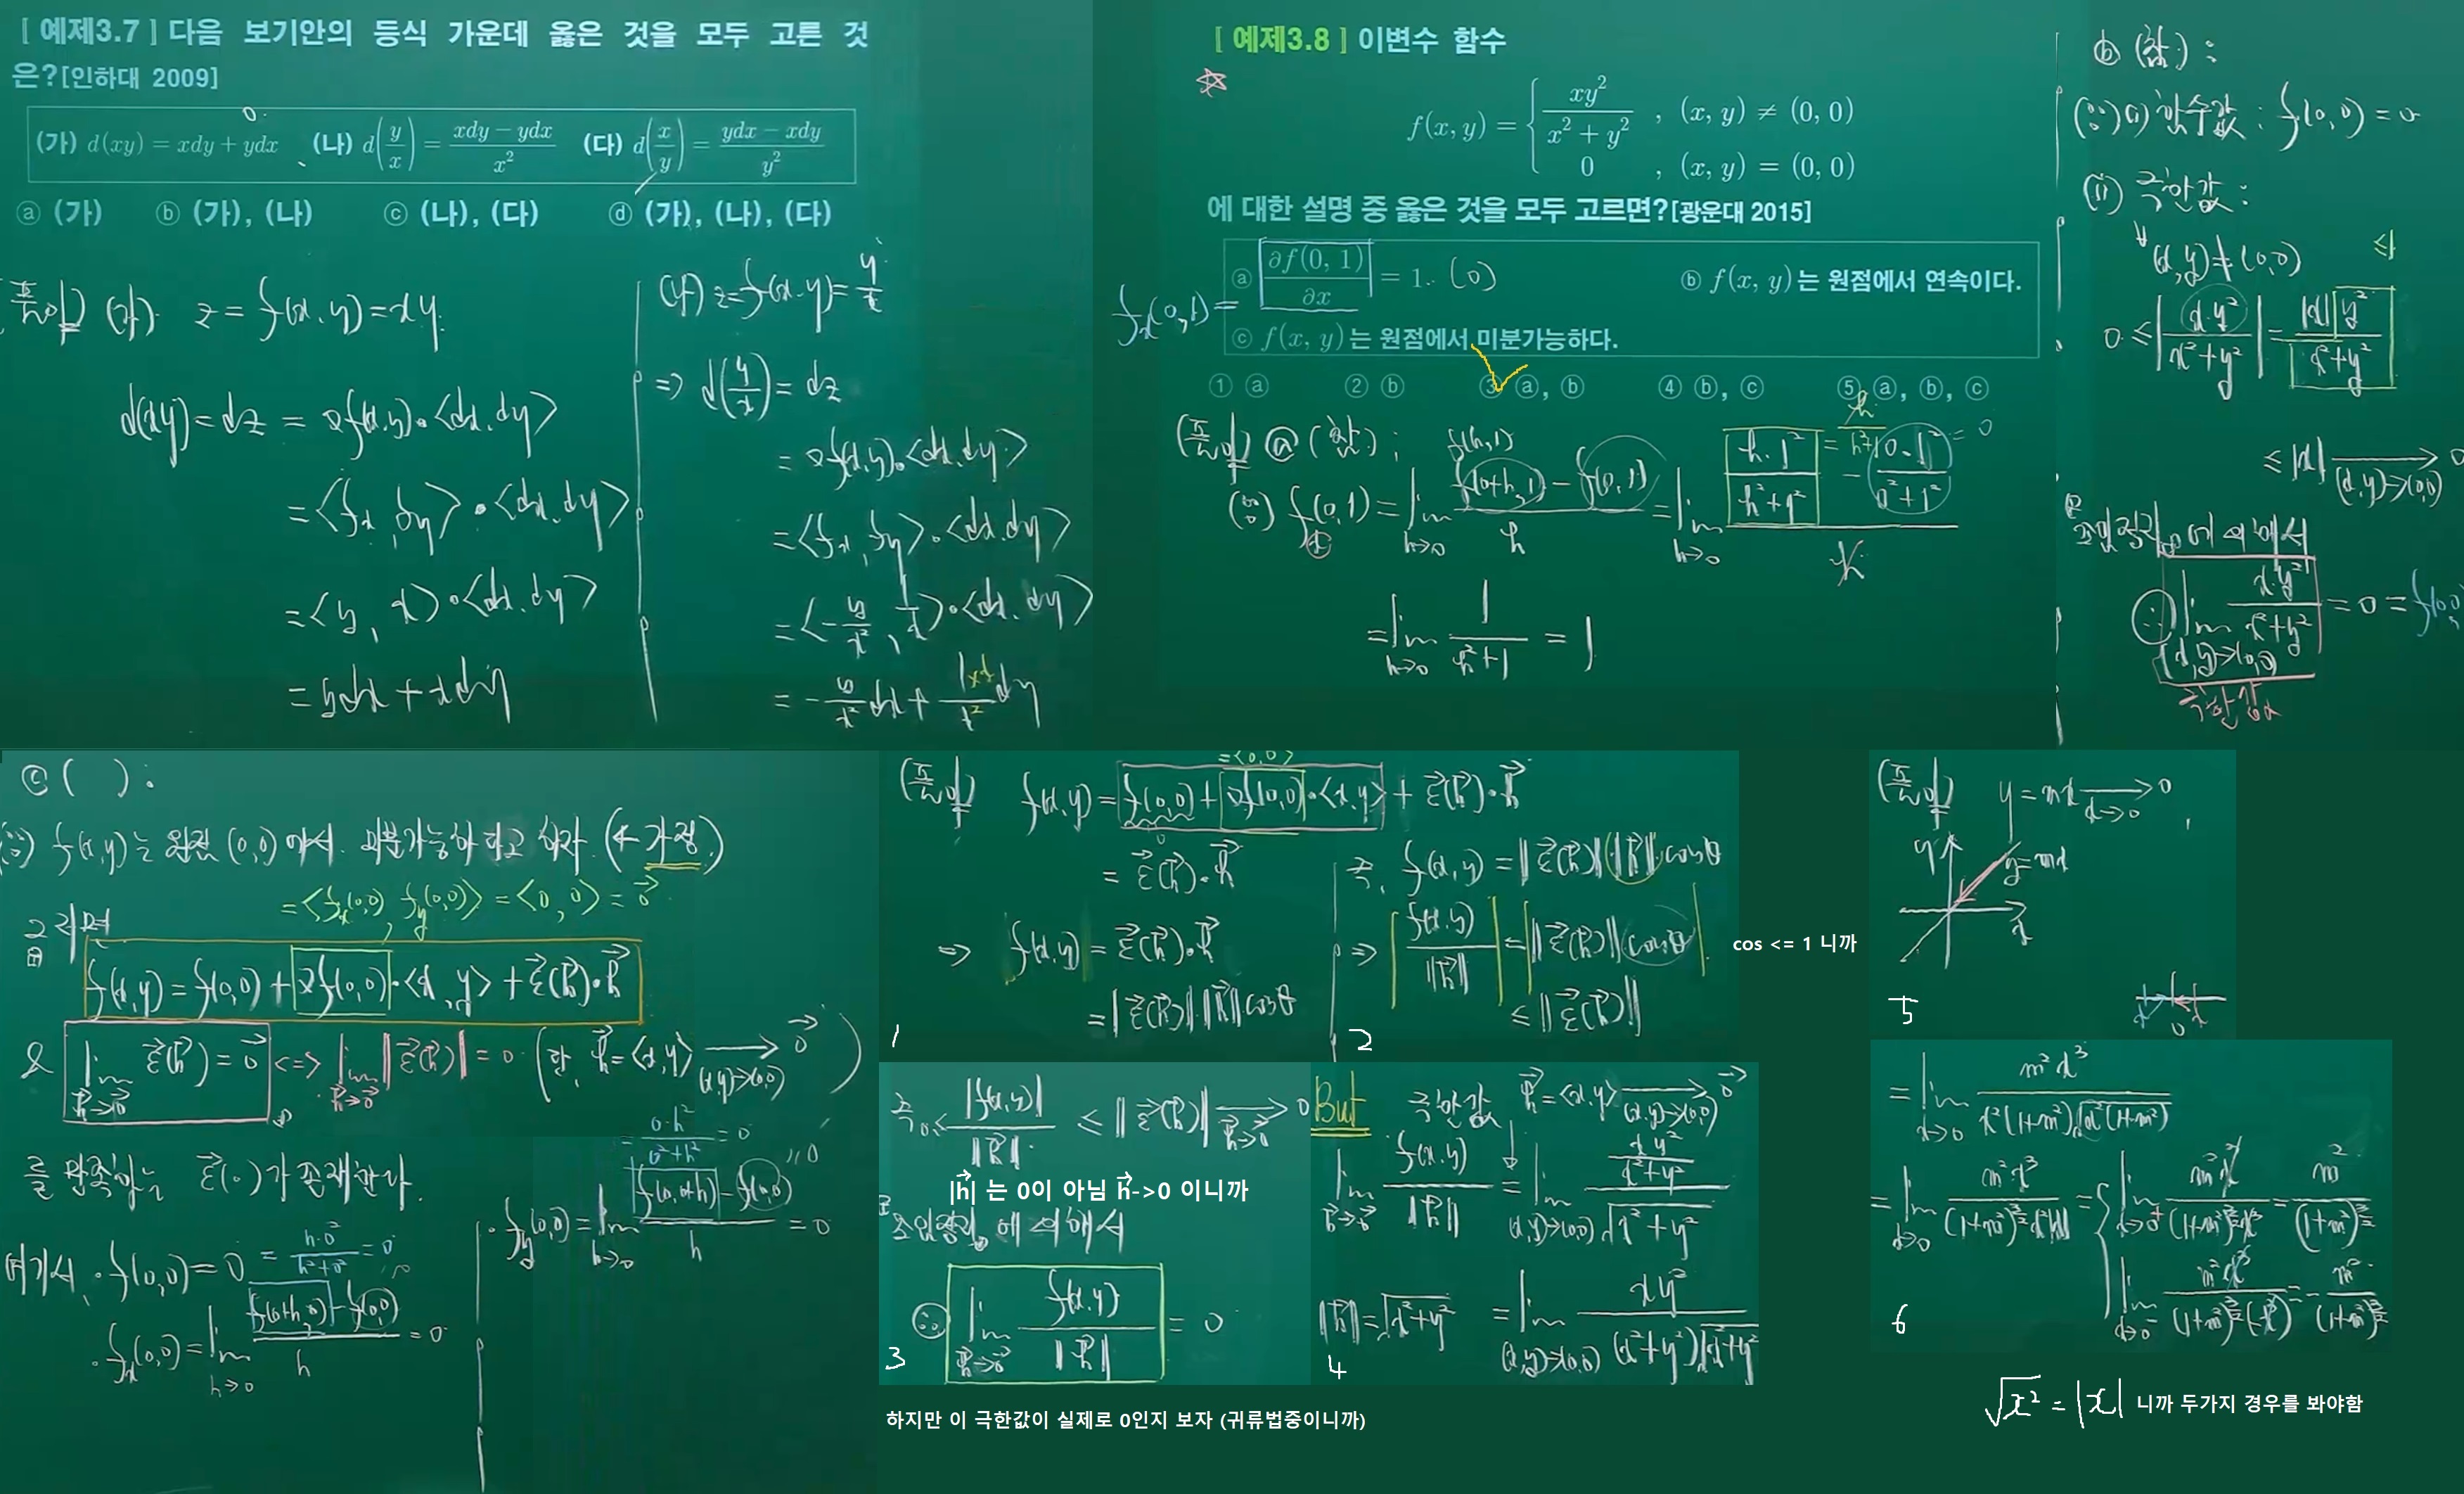 [ 예제3.7 ] 다음 보기안의 등식 가운데 옳은 것을 모두 고른 것
은?[인하대 2009]
(가) d(xy) = xdy + ydx (나) d(y/x) = (xdy − ydx)/x² (다) d(x/y) = (ydx − xdy)/y²
ⓐ (가) ⓑ (가), (나) ⓒ (나), (다) ⓓ (가), (나), (다)
풀이) (가) z = f(x,y) = xy
d(xy) = dz = ∇f(x,y)·<dx,dy>
= <fx, fy>·<dx,dy>
= <y, x>·<dx,dy>
= ydx + xdy
(나) z = f(x,y) = y/x
⇒ d(y/x) = dz
= ∇f(x,y)·<dx,dy>
= <fx, fy>·<dx,dy>
= <−y/x², 1/x>·<dx,dy>
= −y/x² dx + 1×x/x² dy
[ 예제3.8 ] 이변수 함수
f(x, y) = { xy²/(x² + y²) , (x, y) ≠ (0, 0)
0 , (x, y) = (0, 0)
에 대한 설명 중 옳은 것을 모두 고르면?[광운대 2015]
fx(0,1) =
ⓐ ∂f(0, 1)/∂x = 1. (0) ⓑ f(x, y)는 원점에서 연속이다.
ⓒ f(x, y)는 원점에서 미분가능하다.
① ⓐ ② ⓑ ③ ⓐ, ⓑ ④ ⓑ, ⓒ ⑤ ⓐ, ⓑ, ⓒ
(풀이) ⓐ (참) ;
f(h,1)
(∵) fx(0,1) = lim h→0 (f(0+h,1) − f(0,1))/h = lim h→0 (h·1²/(h²+1²) − 0·1²/(0²+1²))/h
= h/(h²+1)
= 0
= lim h→0 1/(h²+1) = 1
ⓑ (참) :
(∵) (i) 함수값 : f(0,0) = 0
(ii) 극한값 :
∀(x,y) ≠ (0,0)
≤1
0 ≤ |x·y²/(x²+y²)| = |x|y²/(x²+y²)
≤ |x| → 0 (x,y)→(0,0)
조임정리에 의해서
∴ lim (x,y)→(0,0) x·y²/(x²+y²) = 0 = f(0,0)
극한값
ⓒ ( ) :
(∵) f(x,y)는 원점 (0,0)에서 미분가능하다고 하자. (← 가정)
= <fx(0,0), fy(0,0)> = <0,0> = 0⃗
그러면
f(x,y) = f(0,0) + ∇f(0,0)·<x,y> + ε⃗(h⃗)·h⃗
& lim h⃗→0⃗ ε⃗(h⃗) = 0⃗ <=> lim h⃗→0⃗ ‖ε⃗(h⃗)‖ = 0 (단, h⃗ = <x,y> → 0⃗ (x,y)→(0,0))
를 만족하는 ε⃗(·)가 존재한다.
여기서, · f(0,0) = 0
= h·0²/(h²+0²) = 0
· fx(0,0) = lim h→0 (f(0+h,0) − f(0,0))/h = 0
= 0·h²/(0²+h²) = 0
· fy(0,0) = lim h→0 (f(0,0+h) − f(0,0))/h = 0
= <0,0>
(풀이) f(x,y) = f(0,0) + ∇f(0,0)·<x,y> + ε⃗(h⃗)·h⃗
= ε⃗(h⃗)·h⃗
⇒ f(x,y) = ε⃗(h⃗)·h⃗
= ‖ε⃗(h⃗)‖‖h⃗‖cosθ
1
즉, f(x,y) = ‖ε⃗(h⃗)‖‖h⃗‖cosθ
⇒ |f(x,y)/‖h⃗‖| = |‖ε⃗(h⃗)‖cosθ|
≤ ‖ε⃗(h⃗)‖
2
cos <= 1 니까
즉 0≤ |f(x,y)|/‖h⃗‖ ≤ ‖ε⃗(h⃗)‖ → 0 h⃗→0⃗
|h⃗| 는 0이 아님 h⃗->0 이니까
조임정리에 의해서
∴ lim h⃗→0⃗ f(x,y)/‖h⃗‖ = 0
3
하지만 이 극한값이 실제로 0인지 보자 (귀류법중이니까)
But 극한값 h⃗ = <x,y> → 0⃗ (x,y)→(0,0)
lim h⃗→0⃗ f(x,y)/‖h⃗‖ = lim (x,y)→(0,0) (xy²/(x²+y²))/√(x²+y²)
‖h⃗‖ = √(x²+y²) = lim (x,y)→(0,0) xy²/((x²+y²)√(x²+y²))
4
(풀이) y = mx → 0 x→0
y
y=mx
x
0
5
= lim x→0 m²x³/(x²(1+m²)√(x²(1+m²)))
= lim x→0 m²x³/((1+m²)^(3/2) x²|x|) = { lim x→0+ m²x³/((1+m²)^(3/2) x³) = m²/(1+m²)^(3/2)
lim x→0− m²x³/((1+m²)^(3/2)(−x³)) = −m²/(1+m²)^(3/2)
6
√x² = |x| 니까 두가지 경우를 봐야함